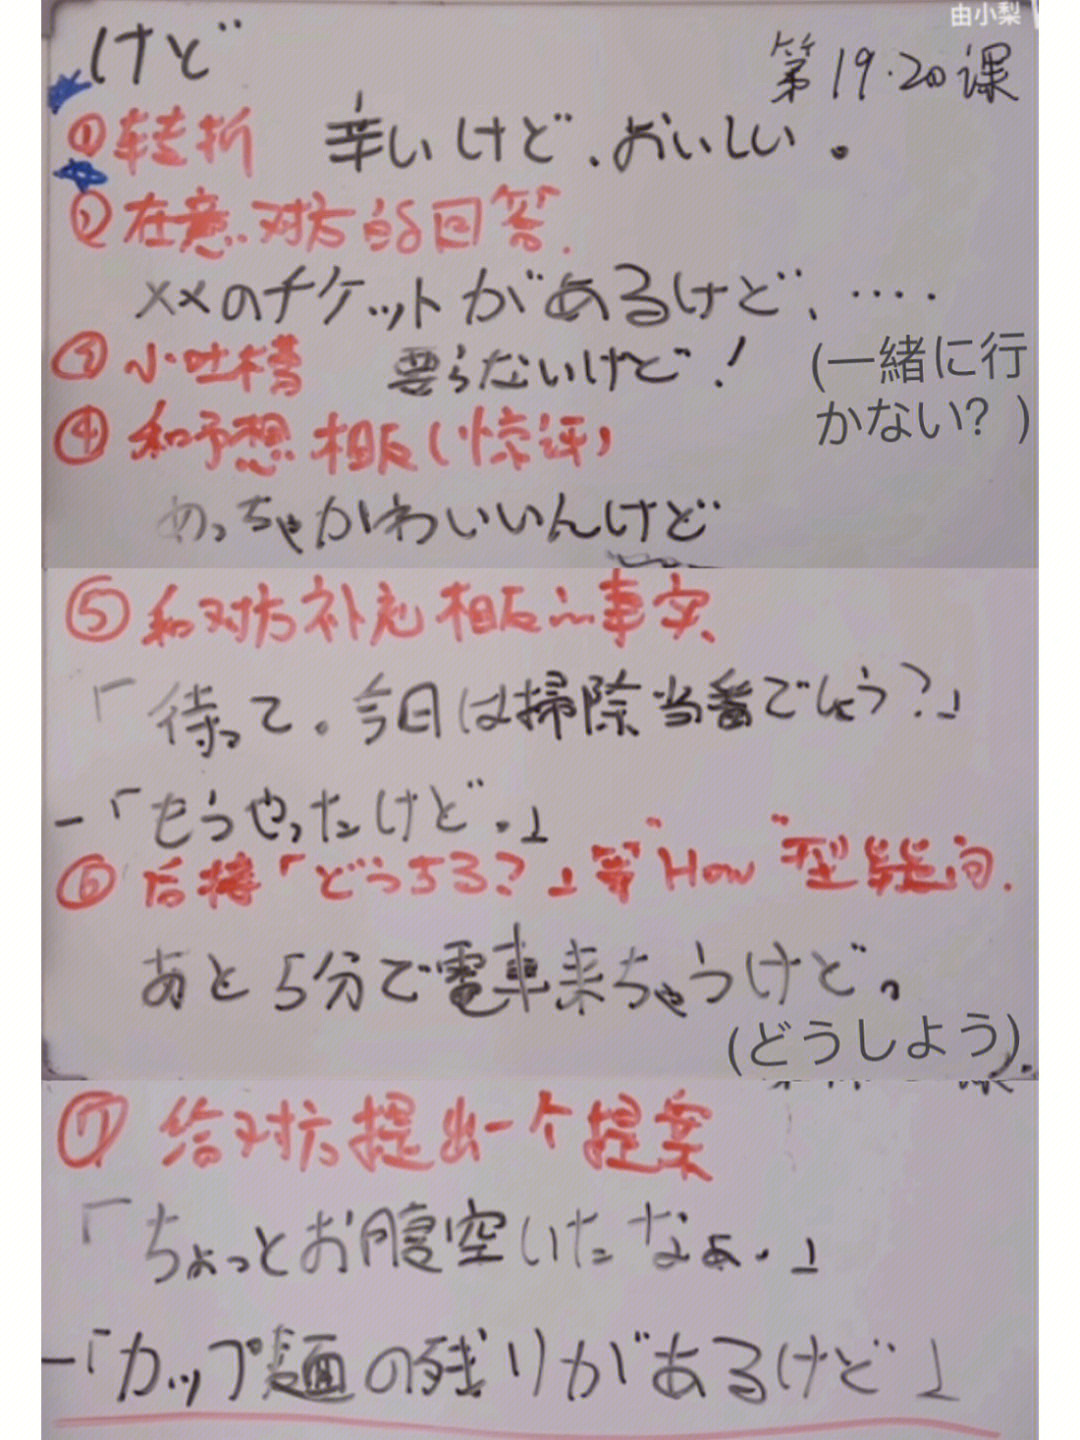 由小梨
けど
第19.20课
①转折 辛いけど、おいしい。
②在意对方的回答.
××のチケットがあるけど、‥‥
(一緒に行かない？)
③小吐槽 要らないけど！
④和予想相反(惊讶)
めっちゃかわいいんけど
⑤和对方补充相反的事实.
「待って。今日は掃除当番でしょう？」
－「もうやったけど。」
⑥后接「どうする？」等"How"型疑问.
あと5分で電車来ちゃうけど。
(どうしよう).
⑦给对方提出一个提案
「ちょっとお腹空いたなぁ.」
－「カップ麺の残りがあるけど」